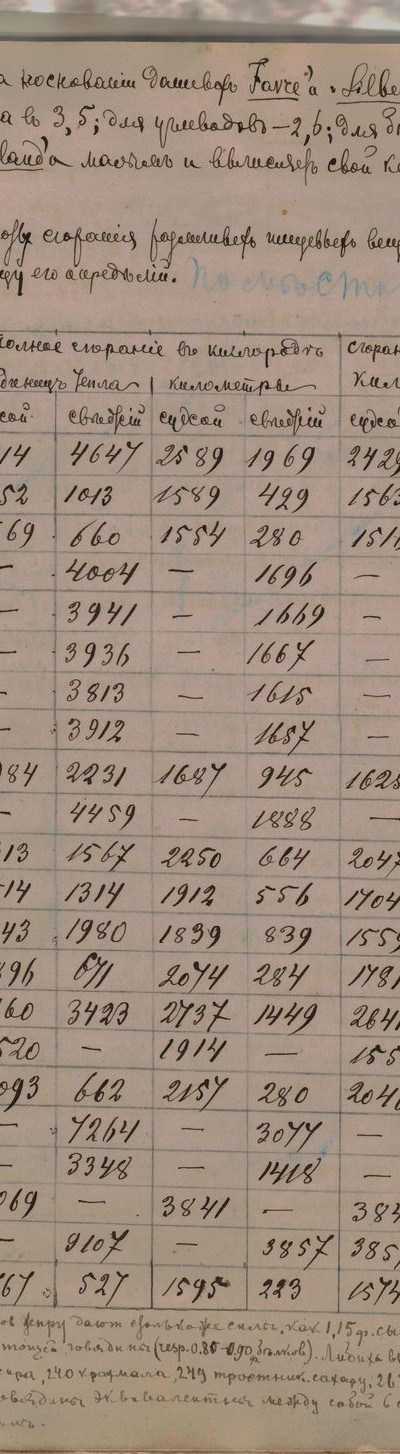 а на основании данныхъ Favre'а и Silbe
а въ 3,5; для углеводовъ—2,6; для
land'а и вычислялъ свои
сгоранія различныхъ пищевыхъ вещ
его определій.
полное сгораніе въ кислородѣ сгоран
единицъ тепла километры кил
сой свѣжій сухой свѣжій сухо
14 4647 2589 1969 2429
52 1013 1589 429 1563
69 660 1554 280 1516
— 4004 — 1696 —
— 3941 — 1669 —
— 3936 — 1667 —
— 3813 — 1615 —
— 3912 — 1657 —
84 2231 1687 945 1625
— 4459 — 1888 —
13 1567 2250 664 2047
14 1314 1912 556 1704
43 1980 1839 839 1559
896 671 2074 284 1781
160 3423 2737 1449 2641
520 — 1914 — 155
093 662 2157 280 2046
— 7264 — 3077 —
— 3348 — 1418 —
069 — 3841 — 384
— 9107 — 3857 385
767 527 1595 223 1574
жиру даютъ столько же силы, какъ 1,15 ф. сы
тощей говядины (resp. 0.80–0.90 ф. бѣлковъ). Либихъ
240 крахмала, 249 тростник. сахару, 26
говядины эквивалентны между собой